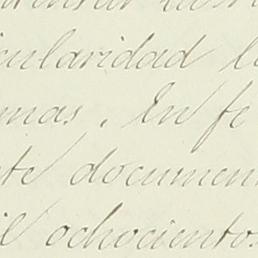 cularidad l
mas. En fe
te documen
il ochocientos